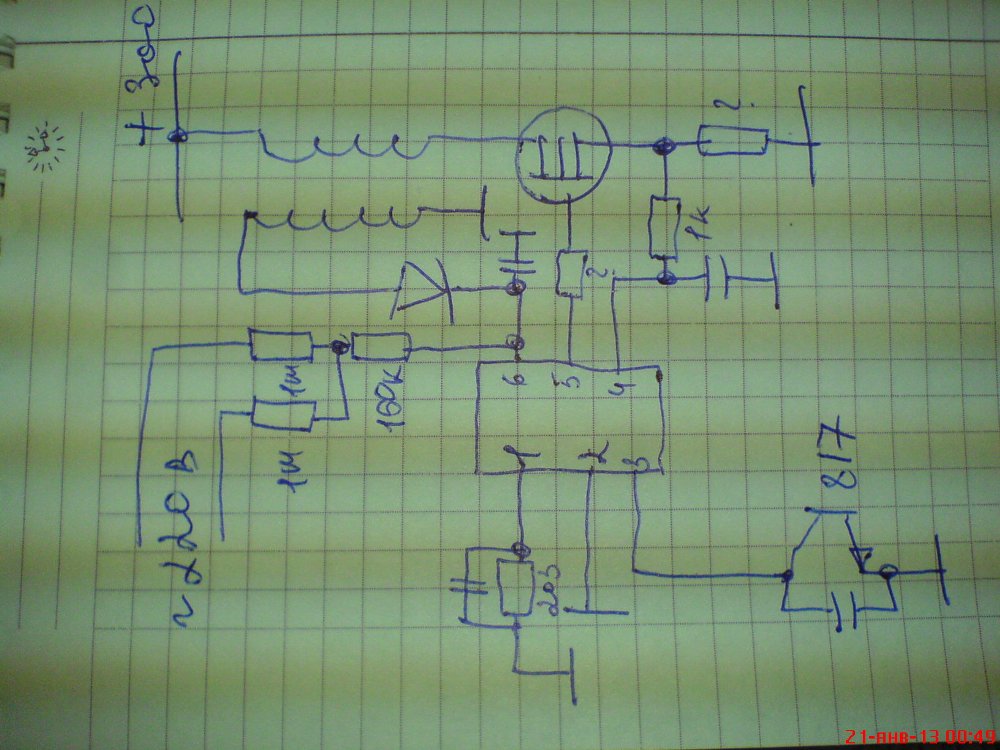 + 300
?
1к
?
6 5 4
1М
100к
1М
~ 220 В
1 2 3
203
817
21-янв-13 00:49